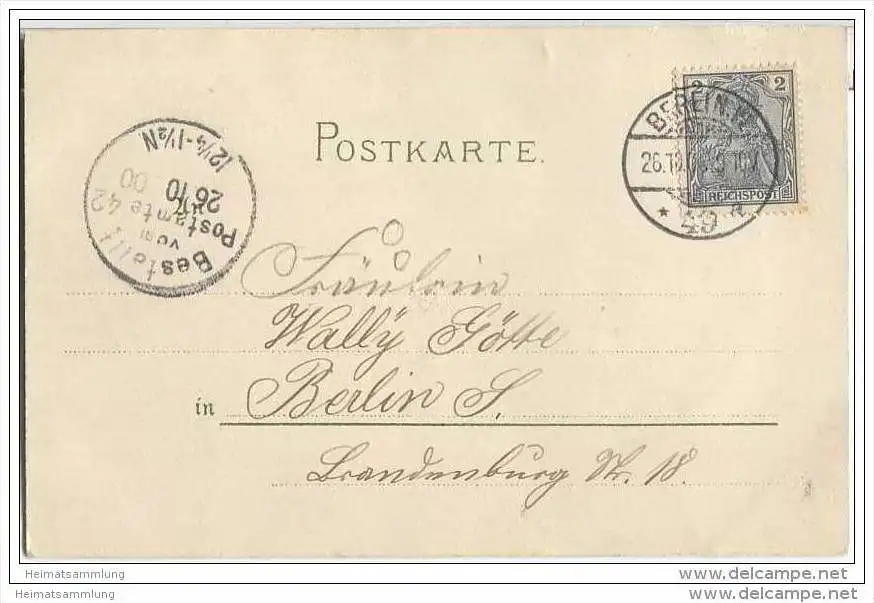 POSTKARTE.
2 2
REICHSPOST
BERLIN
49
Bestellt
vom
Postamte 42
26 10 00
12¼-1½N
Fräulein
Wally Götte
in Berlin S.
Brandenburg Str. 18.
Heimatsammlung
Heimatsammlung
www.delcampe.net
www.delcampe.net